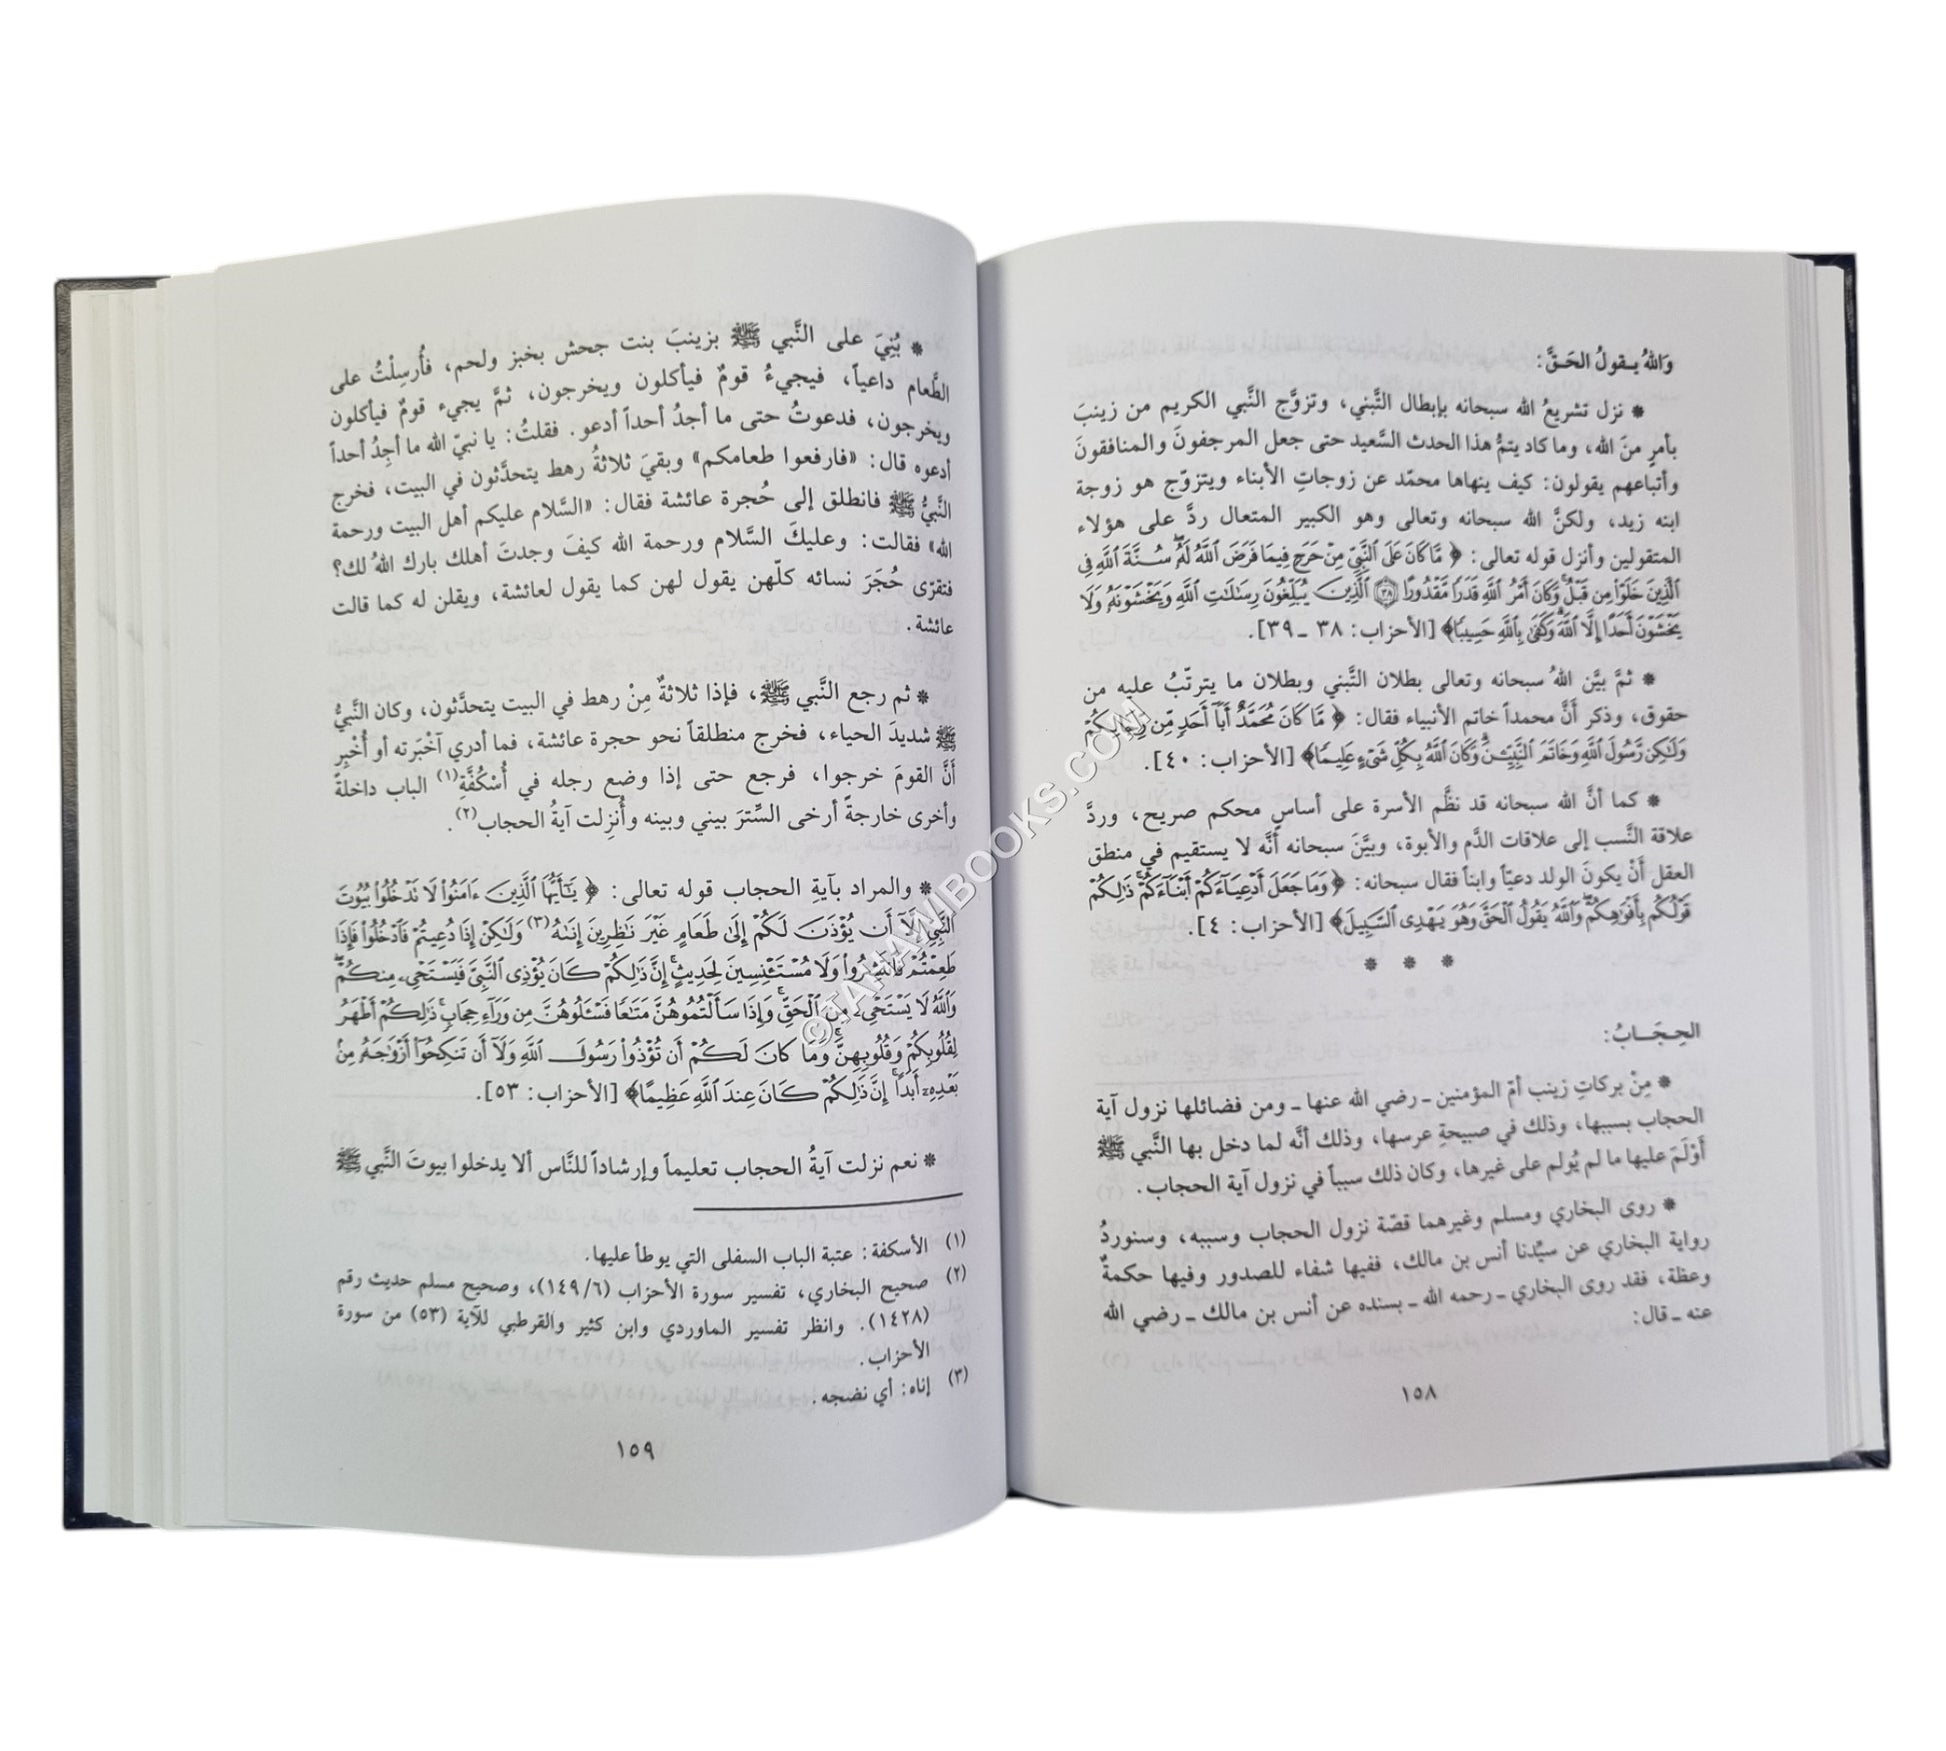 والله يـقولُ الحَـقَّ:
* نزل تشريعُ الله سبحانه بإبطال التَّبني، وتزوَّج النَّبي الكريم من زينبَ
بأمرٍ منَ الله، وما كاد يتمُّ هذا الحدث السَّعيد حتى جعل المرجفونَ والمنافقونَ
وأتباعهم يقولون: كيف ينهاها محمّد عن زوجاتِ الأبناء ويتزوّج هو زوجة
ابنه زيد، ولكنَّ الله سبحانه وتعالى وهو الكبير المتعال ردَّ على هؤلاء
المتقولين وأنزل قوله تعالى: ﴿ مَّا كَانَ عَلَى ٱلنَّبِيِّ مِنْ حَرَجٍ فِيمَا فَرَضَ ٱللَّهُ لَهُۥ سُنَّةَ ٱللَّهِ فِي
ٱلَّذِينَ خَلَوْا۟ مِن قَبْلُ وَكَانَ أَمْرُ ٱللَّهِ قَدَرًا مَّقْدُورًا ٣٨ ٱلَّذِينَ يُبَلِّغُونَ رِسَٰلَٰتِ ٱللَّهِ وَيَخْشَوْنَهُۥ وَلَا
يَخْشَوْنَ أَحَدًا إِلَّا ٱللَّهَ وَكَفَىٰ بِٱللَّهِ حَسِيبًا﴾ [الأحزاب: ٣٨ ـ ٣٩].
* ثمَّ بيَّن اللهُ سبحانه وتعالى بطلان التَّبني وبطلان ما يترتّبُ عليه من
حقوق، وذكر أنَّ محمداً خاتم الأنبياء فقال: ﴿ مَّا كَانَ مُحَمَّدٌ أَبَآ أَحَدٍ مِّن رِّجَالِكُمْ
وَلَٰكِن رَّسُولَ ٱللَّهِ وَخَاتَمَ ٱلنَّبِيِّـۧنَ وَكَانَ ٱللَّهُ بِكُلِّ شَىْءٍ عَلِيمًا﴾ [الأحزاب: ٤٠].
* كما أنَّ الله سبحانه قد نظَّم الأسرة على أساسٍ محكم صريح، وردَّ
علاقة النَّسب إلى علاقات الدَّم والأبوة، وبيَّنَ سبحانه أنَّه لا يستقيم في منطق
العقل أَنْ يكونَ الولد دعيّاً وابناً فقال سبحانه: ﴿ وَمَا جَعَلَ أَدْعِيَآءَكُمْ أَبْنَآءَكُمْ ذَٰلِكُمْ
قَوْلُكُم بِأَفْوَٰهِكُمْ وَٱللَّهُ يَقُولُ ٱلْحَقَّ وَهُوَ يَهْدِى ٱلسَّبِيلَ﴾ [الأحزاب: ٤].
* * *
الحِـجَـابُ:
* مِنْ بركاتِ زينب أمّ المؤمنين ـ رضي الله عنها ـ ومن فضائلها نزول آية
الحجاب بسببها، وذلك في صبيحةِ عرسها، وذلك أنَّه لما دخل بها النَّبي ﷺ
أَوْلَمَ عليها ما لم يُولم على غيرها، وكان ذلك سبباً في نزول آية الحجاب.
* روى البخاري ومسلم وغيرهما قصّة نزول الحجاب وسببه، وسنوردُ
رواية البخاري عن سيِّدنا أنس بن مالك، ففيها شفاء للصدور وفيها حكمةٌ
وعظة، فقد روى البخاري ـ رحمه الله ـ بسنده عن أنس بن مالك ـ رضي الله
عنه ـ قال:
١٥٨
* بُنِيَ على النَّبي ﷺ بزينبَ بنت جحش بخبز ولحم، فأُرسِلْتُ على
الطَّعام داعياً، فيجيءُ قومٌ فيأكلون ويخرجون، ثمَّ يجيء قومٌ فيأكلون
ويخرجون، فدعوتُ حتى ما أجدُ أحداً أدعو. فقلتُ: يا نبيّ الله ما أجِدُ أحداً
أدعوه قال: «فارفعوا طعامكم» وبقيَ ثلاثةُ رهط يتحدَّثون في البيت، فخرج
النَّبيُّ ﷺ فانطلق إلى حُجرة عائشة فقال: «السَّلام عليكم أهل البيت ورحمة
الله» فقالت: وعليكَ السَّلام ورحمة الله كيفَ وجدتَ أهلك بارك اللهُ لك؟
فتقرّى حُجَرَ نسائه كلّهن يقول لهن كما يقول لعائشة، ويقلن له كما قالت
عائشة.
* ثم رجع النَّبي ﷺ، فإذا ثلاثةٌ مِنْ رهط في البيت يتحدَّثون، وكان النَّبيُّ
ﷺ شديدَ الحياء، فخرج منطلقاً نحو حجرة عائشة، فما أدري آخْبَرته أو أُخْبِر
أَنَّ القومَ خرجوا، فرجع حتى إذا وضع رجله في أُسْكُفَّةِ(١) الباب داخلةً
وأخرى خارجةً أرخى السِّترَ بيني وبينه وأُنزِلت آيةُ الحجاب(٢).
* والمراد بآيةِ الحجاب قوله تعالى: ﴿ يَٰٓأَيُّهَا ٱلَّذِينَ ءَامَنُوا۟ لَا تَدْخُلُوا۟ بُيُوتَ
ٱلنَّبِيِّ إِلَّآ أَن يُؤْذَنَ لَكُمْ إِلَىٰ طَعَامٍ غَيْرَ نَٰظِرِينَ إِنَىٰهُ(٣) وَلَٰكِنْ إِذَا دُعِيتُمْ فَٱدْخُلُوا۟ فَإِذَا
طَعِمْتُمْ فَٱنتَشِرُوا۟ وَلَا مُسْتَـْٔنِسِينَ لِحَدِيثٍ إِنَّ ذَٰلِكُمْ كَانَ يُؤْذِى ٱلنَّبِىَّ فَيَسْتَحْىِۦ مِنكُمْ
وَٱللَّهُ لَا يَسْتَحْىِۦ مِنَ ٱلْحَقِّ وَإِذَا سَأَلْتُمُوهُنَّ مَتَٰعًا فَسْـَٔلُوهُنَّ مِن وَرَآءِ حِجَابٍ ذَٰلِكُمْ أَطْهَرُ
لِقُلُوبِكُمْ وَقُلُوبِهِنَّ وَمَا كَانَ لَكُمْ أَن تُؤْذُوا۟ رَسُولَ ٱللَّهِ وَلَآ أَن تَنكِحُوٓا۟ أَزْوَٰجَهُۥ مِنۢ
بَعْدِهِۦٓ أَبَدًا إِنَّ ذَٰلِكُمْ كَانَ عِندَ ٱللَّهِ عَظِيمًا﴾ [الأحزاب: ٥٣].
* نعم نزلت آيةُ الحجاب تعليماً وإرشاداً للنَّاس ألا يدخلوا بيوتَ النَّبي ﷺ
(١) الأسكفة: عتبة الباب السفلى التي يوطأ عليها.
(٢) صحيح البخاري، تفسير سورة الأحزاب (٦/١٤٩)، وصحيح مسلم حديث رقم
(١٤٢٨). وانظر تفسير الماوردي وابن كثير والقرطبي للآية (٥٣) من سورة
الأحزاب.
(٣) إناه: أي نضجه.
١٥٩
©TAHAWIBOOKS.COM